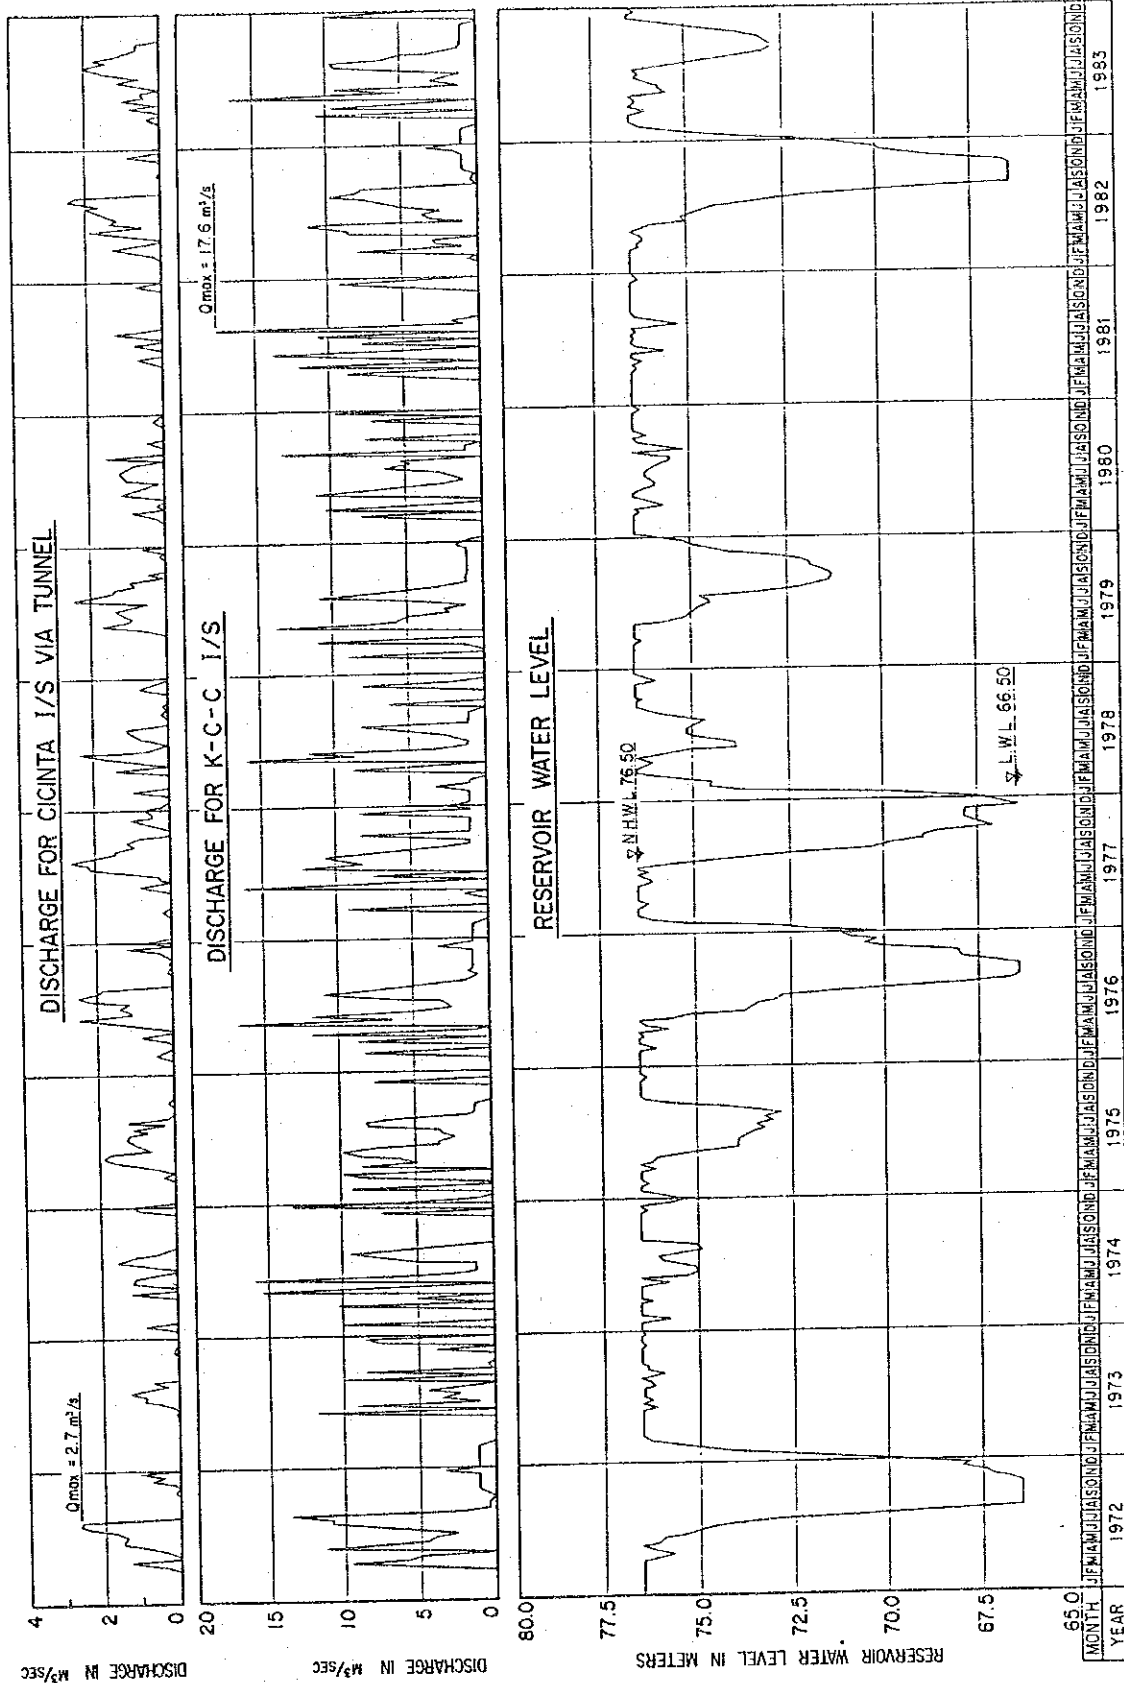 DISCHARGE FOR CICINTA I/S VIA TUNNEL
Qmax = 2.7 m³/s
DISCHARGE IN M³/SEC
4
2
0
DISCHARGE FOR K-C-C I/S
Qmax = 17.6 m³/s
DISCHARGE IN M³/SEC
20
15
10
5
0
RESERVOIR WATER LEVEL
N.H.W.L. 76.50
L.W.L. 66.50
RESERVOIR WATER LEVEL IN METERS
80.0
77.5
75.0
72.5
70.0
67.5
65.0
MONTH J F M A M J J A S O N D J F M A M J J A S O N D J F M A M J J A S O N D J F M A M J J A S O N D J F M A M J J A S O N D J F M A M J J A S O N D J F M A M J J A S O N D J F M A M J J A S O N D J F M A M J J A S O N D J F M A M J J A S O N D J F M A M J J A S O N D J F M A M J J A S O N D
YEAR 1972 1973 1974 1975 1976 1977 1978 1979 1980 1981 1982 1983